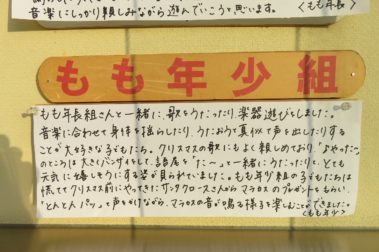 音楽にしっかり親しみながら遊んでいこうと思います。 〈もも年長〉
もも年少組
もも年長組さんと一緒に、歌をうたったり、楽器遊びをしました。
音楽に合わせて身体を揺らしたり、うたおうと真似て声を出したりする
ことが大好きな子どもたち。クリスマスの歌にもよく親しめており、
のところは大きくバンザイをして、語尾を「た〜」と一緒にうたったりと、とても
元気に嬉しそうにする姿が見られていました。もも年少組の子どもたちは
慌ててクリスマス前にやってきたサンタクロースさんからマラカスのプレゼントをもらい、
「とんとん パッ」と声をかけながら、マラカスの音が鳴る様子を楽しんでいました。
〈もも年少〉